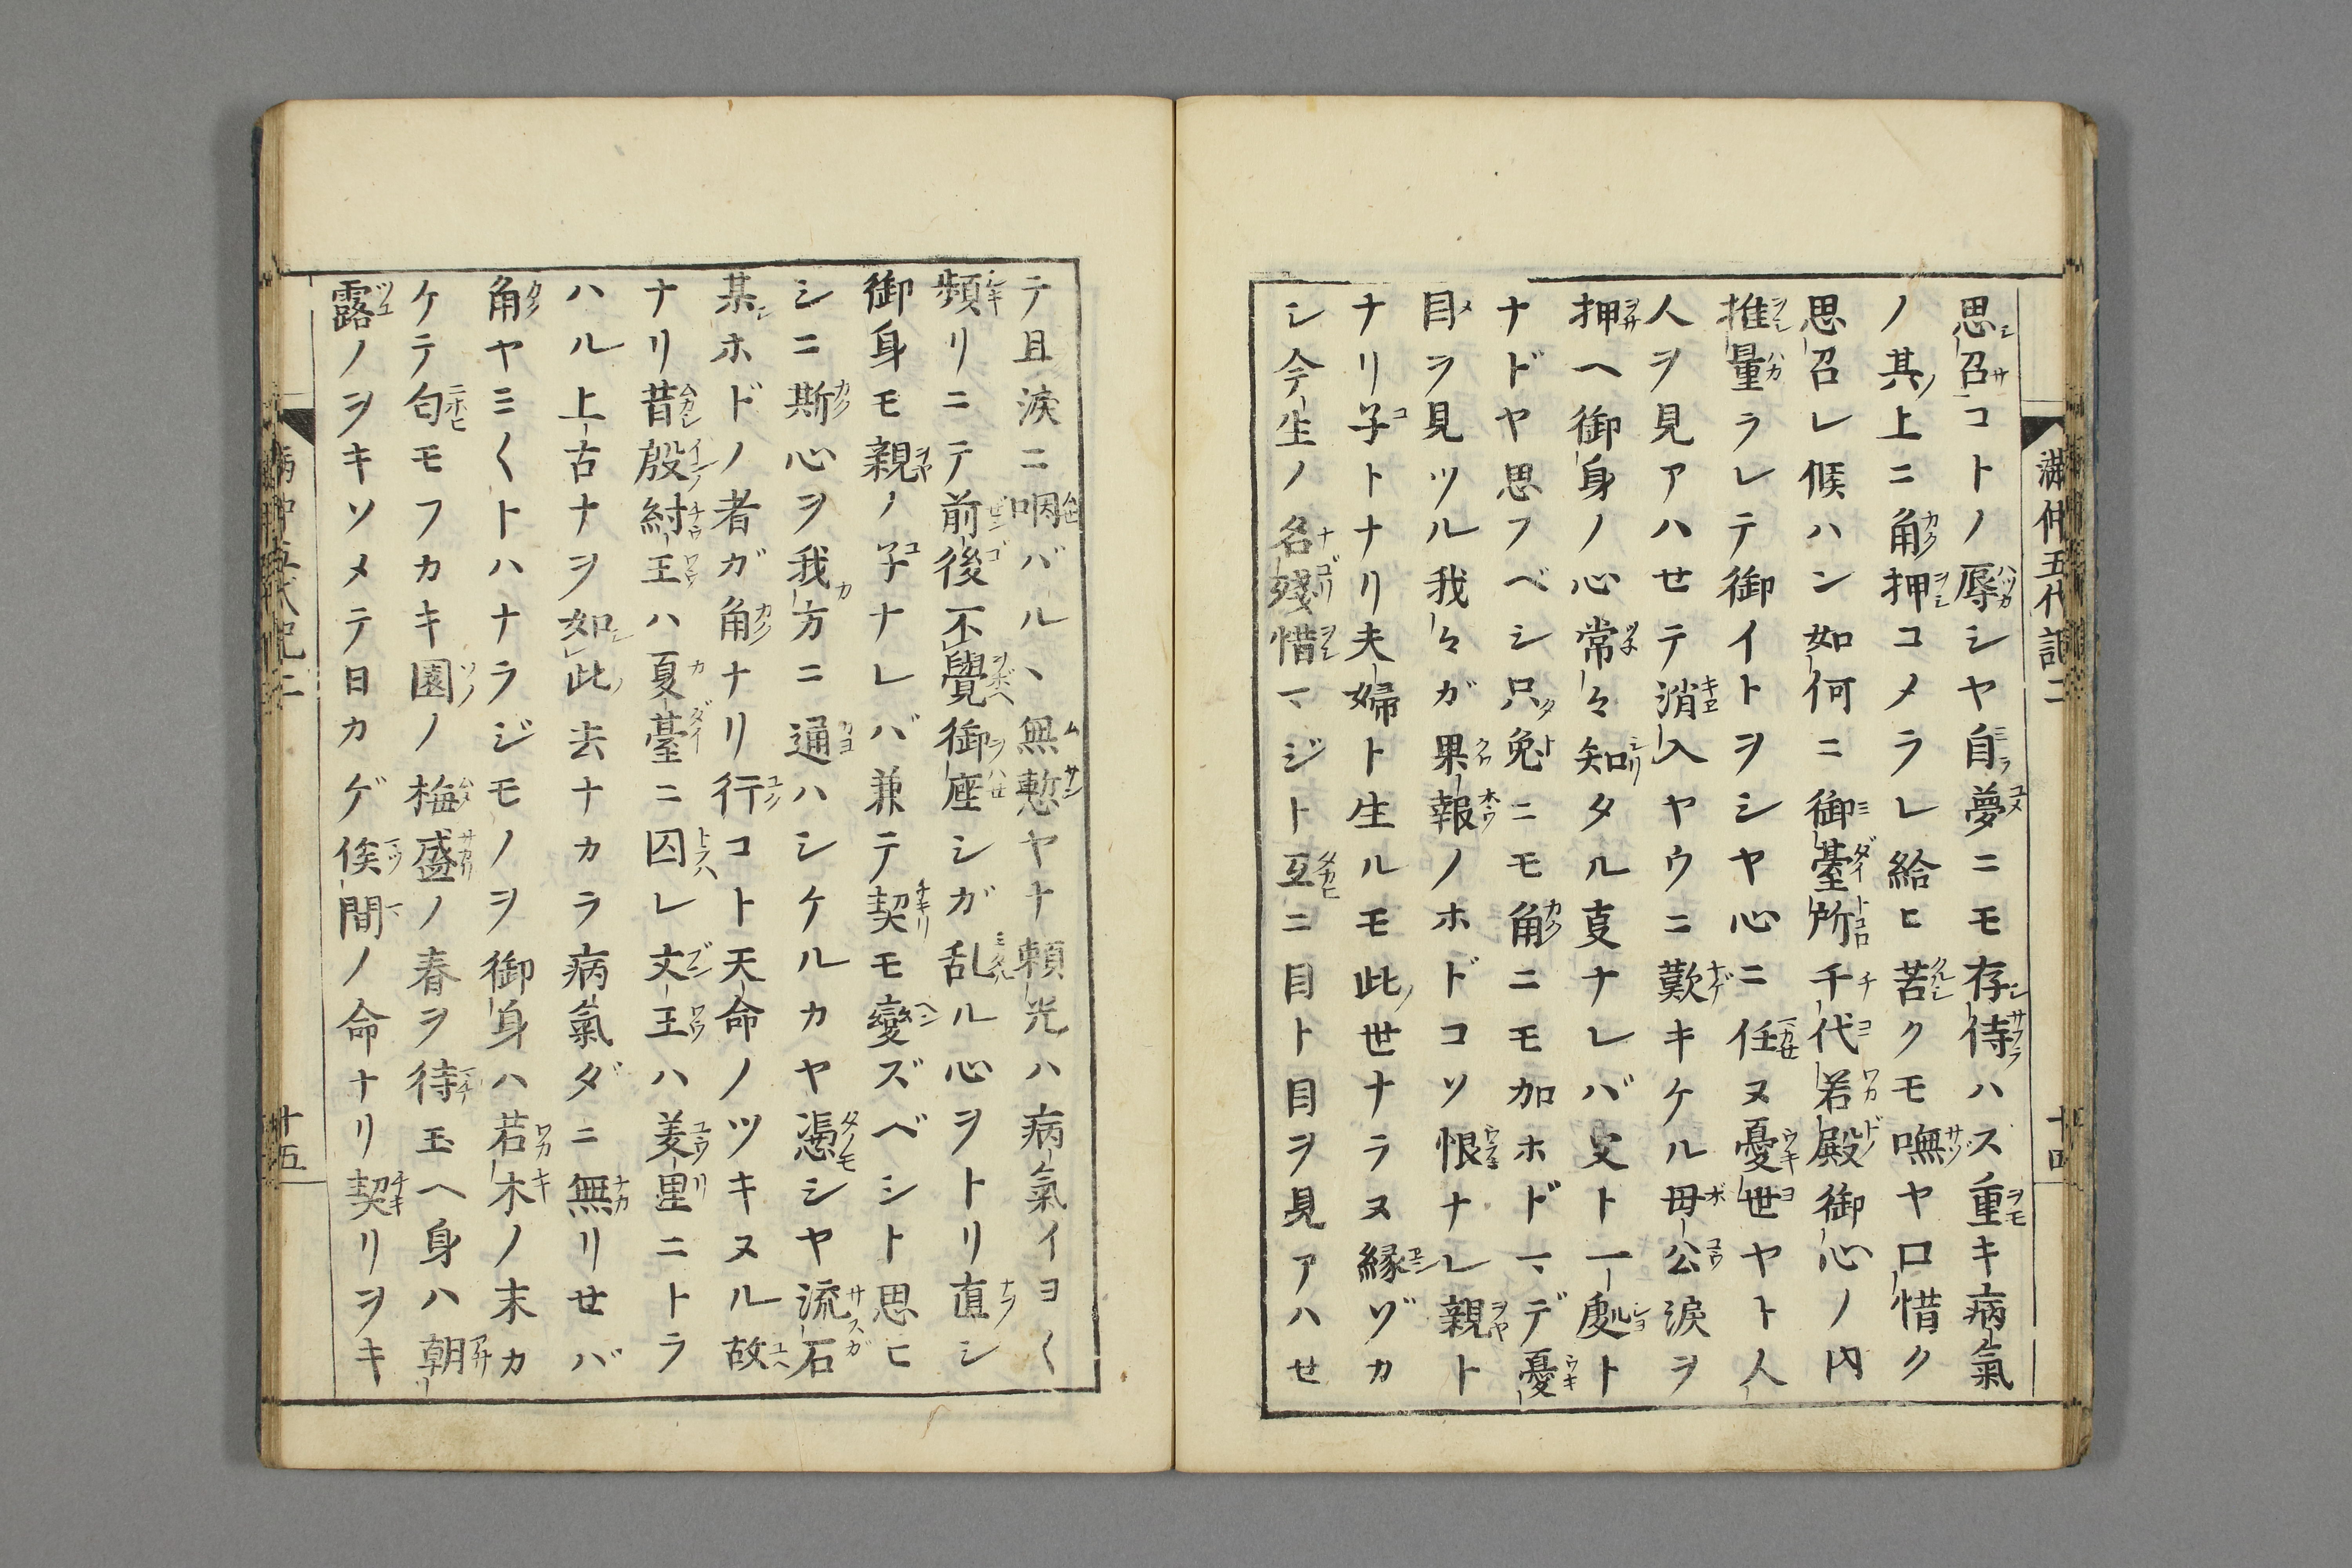 満仲五代記二
十四
思召コトノ辱シヤ自夢ニモ存侍ハス重キ病氣
ノ其上ニ角押コメラレ給ヒ苦クモ嘸ヤ口惜ク
思召レ候ハン如何ニ御臺所千代若殿御心ノ内
推量ラレテ御イトヲシヤ心ニ任ヌ憂世ヤト人
人ヲ見アハセテ消入ヤウニ歎キケル母公涙ヲ
押ヘ御身ノ心常々知タル叓ナレバ父ト一處ト
ナドヤ思フベシ只兔ニモ角ニモ加ホドマデ憂
目ヲ見ツル我々ガ果報ノホドコソ恨ナレ親ト
ナリ子トナリ夫婦ト生ルモ此世ナラヌ縁ヅカ
シ今生ノ名殘惜マジト互ニ目ト目ヲ見アハセ
テ且涙ニ咽バル、無慙ヤナ頼光ハ病氣イヨ〱
頻リニテ前後不覺御座シガ乱ル心ヲトリ直シ
御身モ親ノ子ナレバ兼テ契モ變ズベシト思ヒ
シニ斯心ヲ我方ニ通ハシケルカヤ憑シヤ流石
某ホドノ者ガ角ナリ行コト天命ノツキヌル故
ナリ昔殷紂王ハ夏臺ニ囚レ文王ハ羑里ニトラ
ハル上古ナヲ如此去ナカラ病氣ダニ無リせバ
角ヤミ〱トハナラジモノヲ御身ハ若木ノ末カ
ケテ匂モフカキ園ノ梅盛ノ春ヲ待玉ヘ身ハ朝
露ノヲキソメテ日カゲ俟間ノ命ナリ契リヲキ
十五